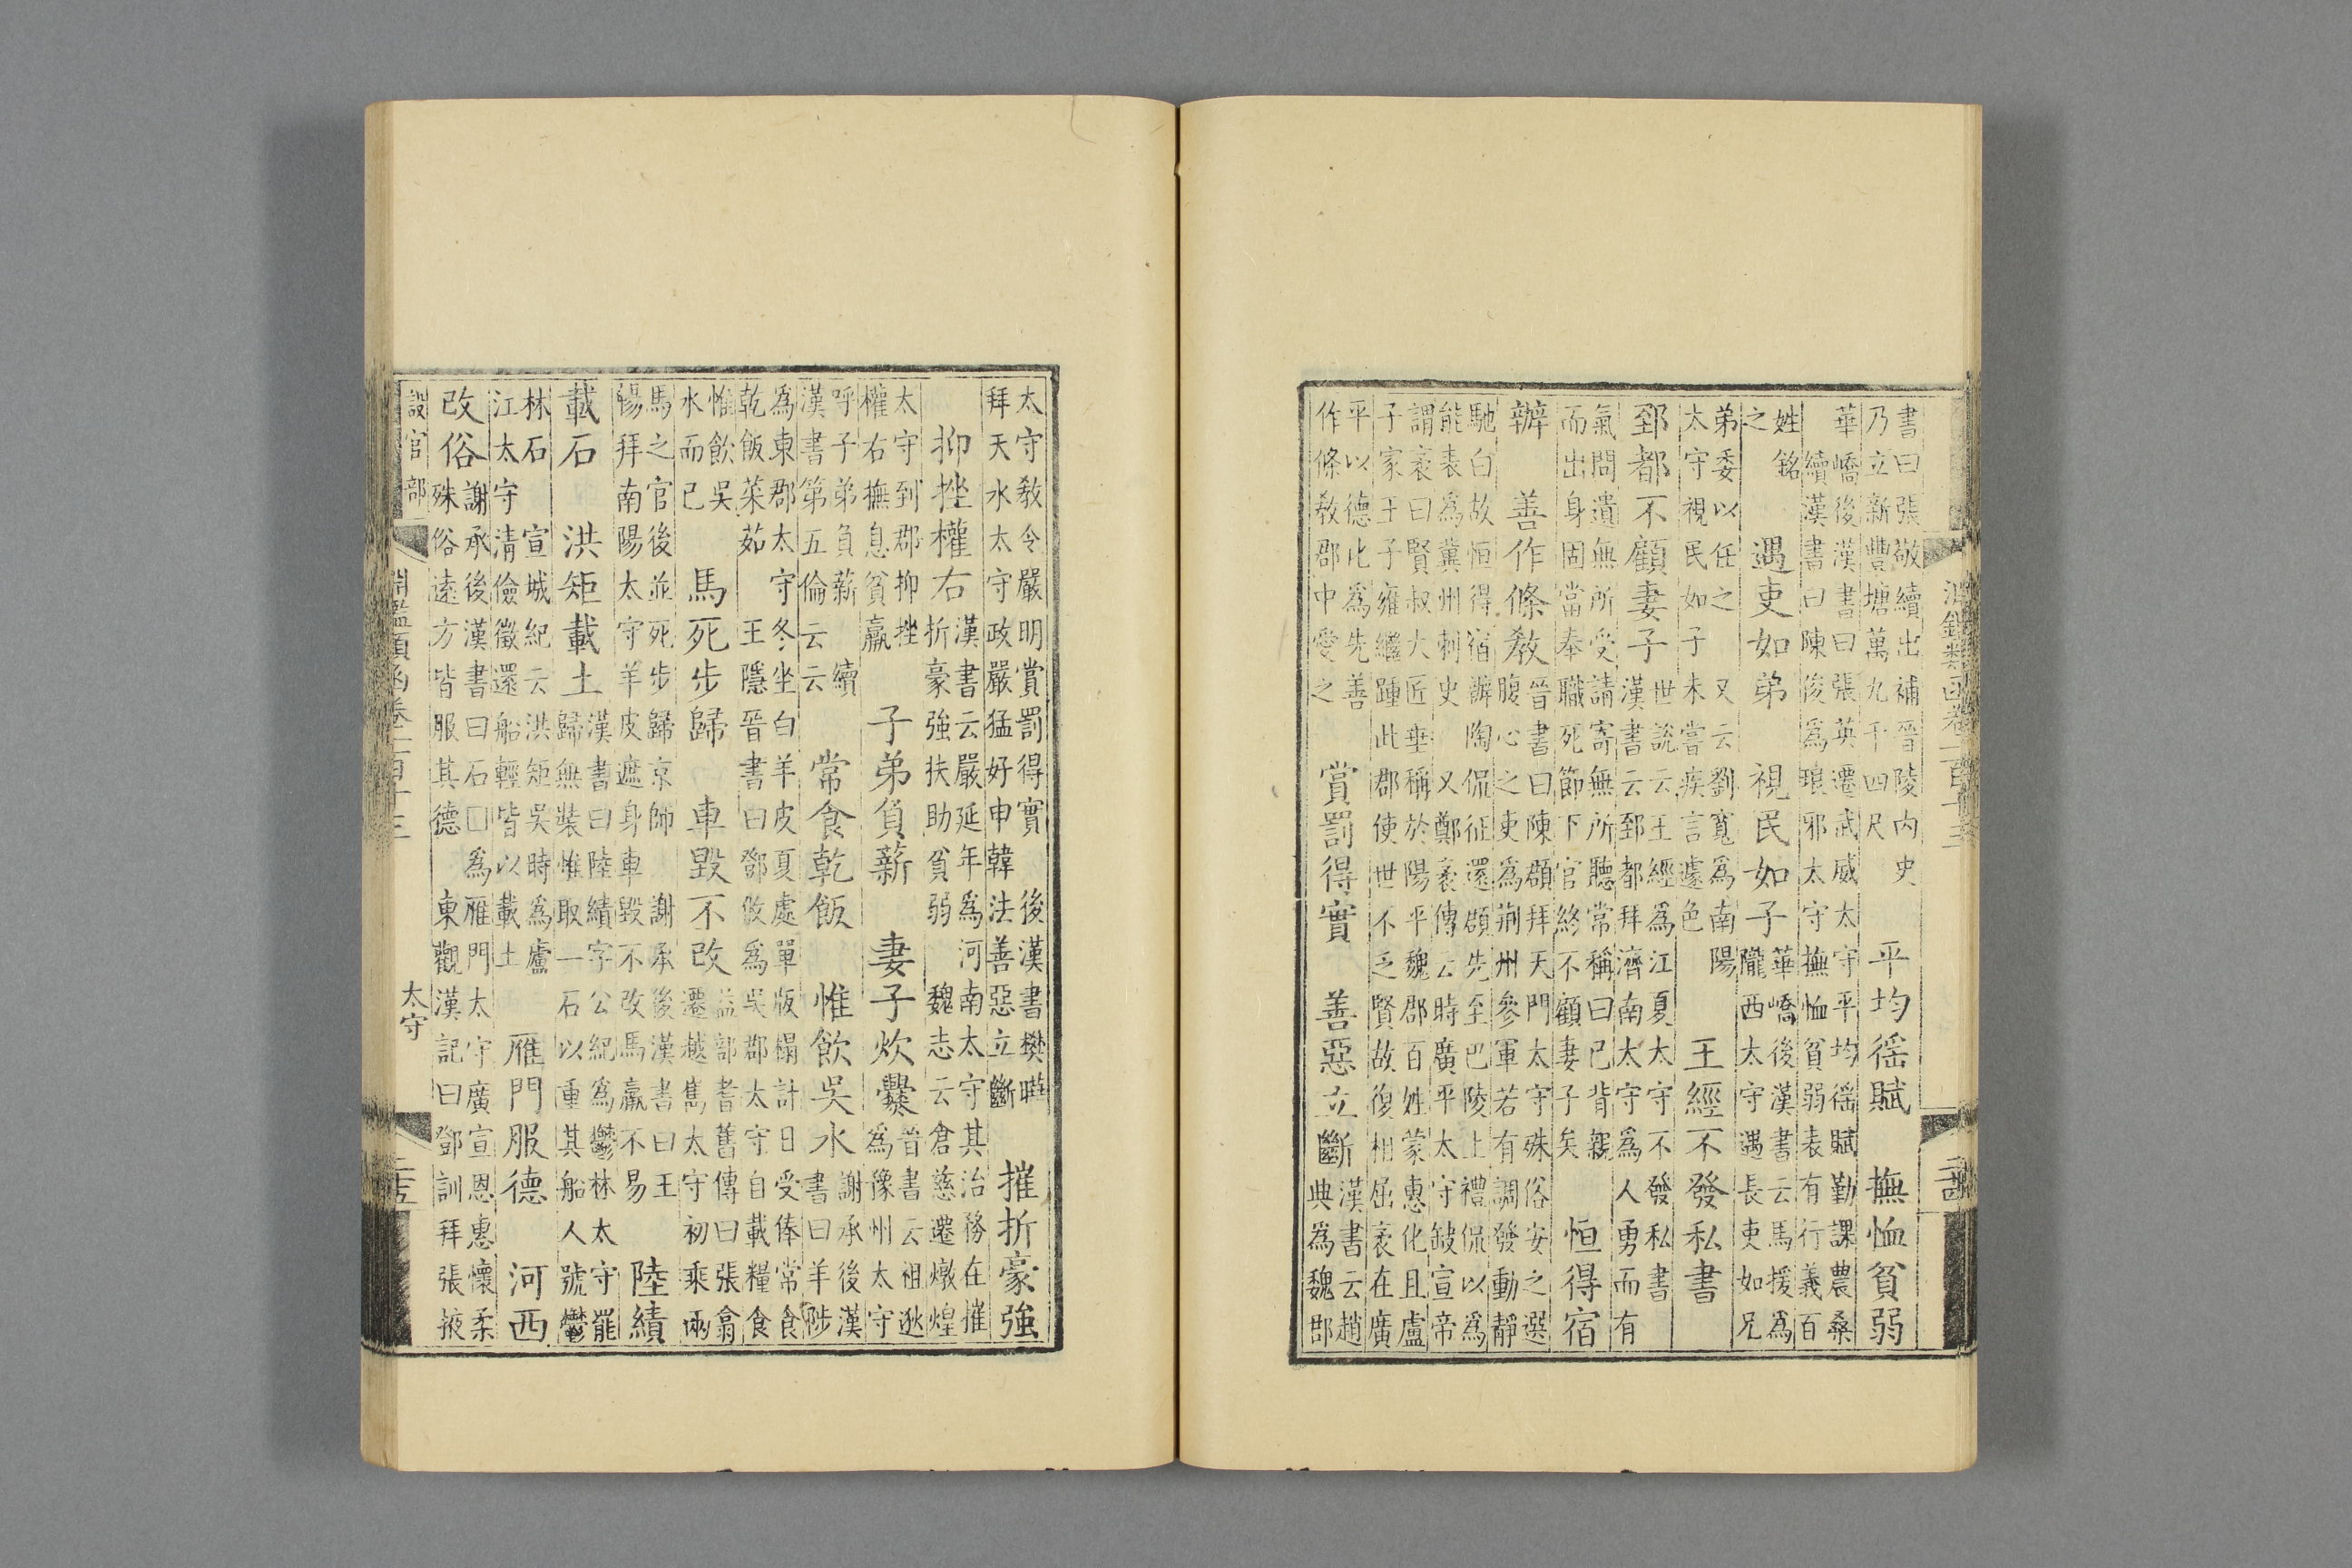 淵鑑類函卷一百十三
書曰張敬續出補晉陵內史
乃立新豐塘萬九千四尺
平均徭賦　撫恤貧弱
華嶠後漢書曰張英遷武威太守平均徭賦勤課農桑
續漢書曰陳俊為琅邪太守撫恤貧弱表有行義百
姓銘
之
遇吏如弟　視民如子
華嶠後漢書云馬援為
隴西太守遇長吏如兄
弟委以任之　又云劉寬為南陽
太守視民如子未嘗疾言遽色
王經不發私書
郅都不顧妻子
世說云王經為江夏太守不發私書
漢書云郅都拜濟南太守為人勇而有
氣問遺無所受請寄無所聽常稱曰已背親
而出身固當奉職死節下官終不顧妻子矣
恒得宿
辦　善作條教
晉書曰陳頵拜天門太守殊俗安之選
腹心之吏為荊州參軍若有調發動靜
馳白故恒得宿辦陶侃征還頵先至巴陵上禮侃以為
能表為冀州刺史　又鄭袤傳云時廣平太守缺宣帝
謂袤曰賢叔大匠垂稱於陽平魏郡百姓蒙惠化且盧
子家王子雍繼踵此郡使世不乏賢故復相屈袤在廣
平以德化為先善
作條教郡中愛之
賞罰得實　善惡立斷
漢書云趙
典為魏郡
太守教令嚴明賞罰得實　後漢書樊曄
拜天水太守政嚴猛好申韓法善惡立斷
摧折豪強
抑挫權右
漢書云嚴延年為河南太守其治務在摧
折豪強扶助貧弱　魏志云倉慈遷燉煌
太守到郡抑挫
權右撫息貧羸
子弟負薪　妻子炊爨
晉書云祖逖
為豫州太守
呼子弟負薪　續
漢書第五倫云云
常食乾飯　惟飲吳水
謝承後漢
書曰羊陟
為東郡太守冬坐白羊皮夏處單版榻計日受俸常食
乾飯菜茹　王隱晉書曰鄧攸為吳郡太守自載糧食
惟飲吳
水而已
馬死步歸　車毀不改
益部耆舊傳曰張翕
遷越嶲太守初乘兩
馬之官後並死步歸京師　謝承後漢書曰王
暢拜南陽太守羊皮遮身車毀不改馬羸不易
陸績
載石　洪矩載土
漢書曰陸績字公紀為鬱林太守罷
歸無裝惟取一石以重其船人號鬱
林石　宣城紀云洪矩吳時為廬
江太守清儉徵還船輕皆以載土
雁門服德　河西
改俗
謝承後漢書曰石□為雁門太守廣宣恩惠懷柔
殊俗遠方皆服其德　東觀漢記曰鄧訓拜張掖
設官部
淵鑑類函卷一百十三
太守